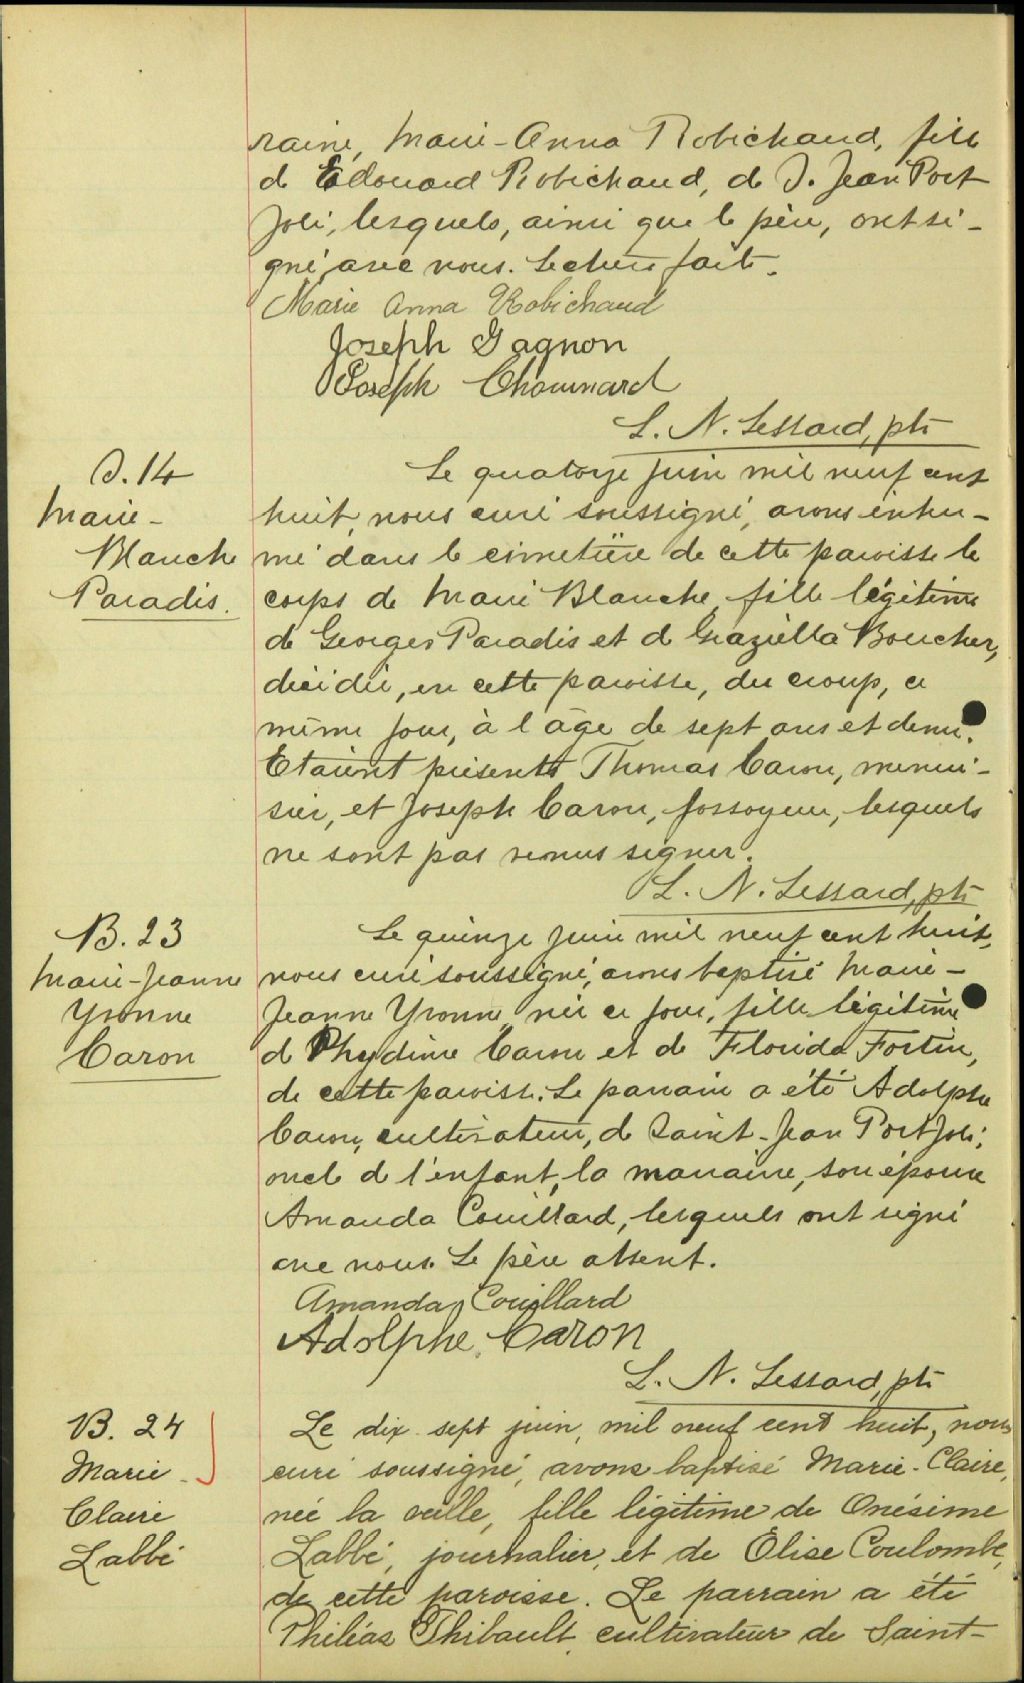 raine, Marie-Anna Robichaud, fille
de Edouard Robichaud, de S. Jean Port
Joli, lesquels, ainsi que le père, ont si-
gné avec nous. Lecture faite.
Marie Anna Robichaud
Joseph Gagnon
Joseph Chouinard
L. N. Lessard, ptr
S. 14
Marie-
Blanche
Paradis.
Le quatorze juin mil neuf cent
huit, nous curé soussigné, avons inhu-
mé dans le cimetière de cette paroisse le
corps de Marie Blanche, fille légitime
de Georges Paradis et de Graziella Boucher,
décédée, en cette paroisse, du croup, ce
même jour, à l'âge de sept ans et demi.
Etaient présents Thomas Caron, menui-
sier, et Joseph Caron, fossoyeur, lesquels
ne sont pas venus signer.
L. N. Lessard, ptr
B. 23
Marie-Jeanne
Yvonne
Caron
Le quinze juin mil neuf cent huit,
nous curé soussigné, avons baptisé Marie-
Jeanne Yvonne, née ce jour, fille légitime
de Phydime Caron et de Florida Fortin,
de cette paroisse. Le parrain a été Adolphe
Caron, cultivateur, de Saint-Jean Port Joli,
oncle de l'enfant, la marraine, son épouse
Amanda Couillard, lesquels ont signé
avec nous. Le père absent.
Amanda Couillard
Adolphe Caron
L. N. Lessard, ptr
B. 24
Marie-
Claire
Labbé
Le dix sept juin, mil neuf cent huit, nous
curé soussigné, avons baptisé Marie-Claire,
née la veille, fille légitime de Onésime
Labbé, journalier, et de Élise Coulombe,
de cette paroisse. Le parrain a été
Philéas Thibault, cultivateur de Saint-